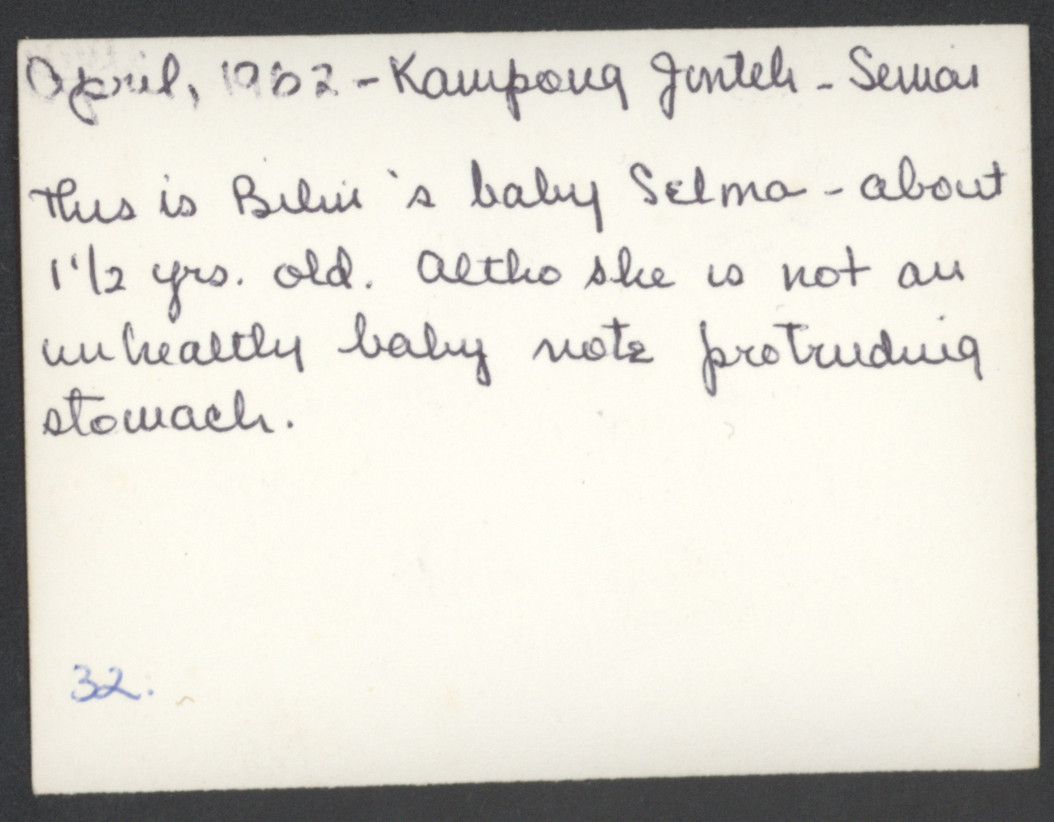 April, 1962 - Kampong Jinteh - Semai
This is Bibii's baby Selma - about
1 1/2 yrs. old. Altho she is not an
unhealthy baby note protruding
stomach.
32.